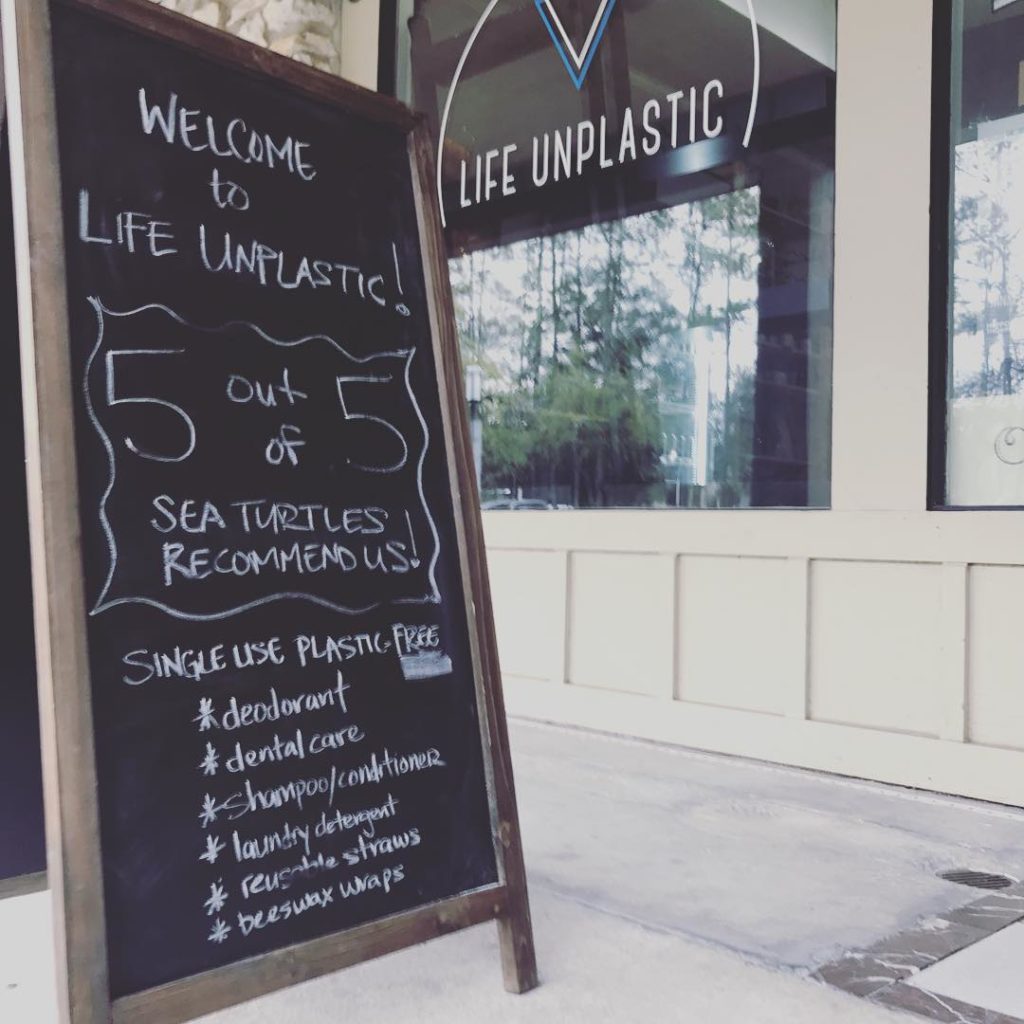 WELCOME
to
LIFE UNPLASTIC!
5 out of 5
SEA TURTLES
RECOMMEND US!
SINGLE USE PLASTIC-FREE
* deodorant
* dental care
* shampoo/conditioner
* laundry detergent
* reusable straws
* beeswax wraps
LIFE UNPLASTIC